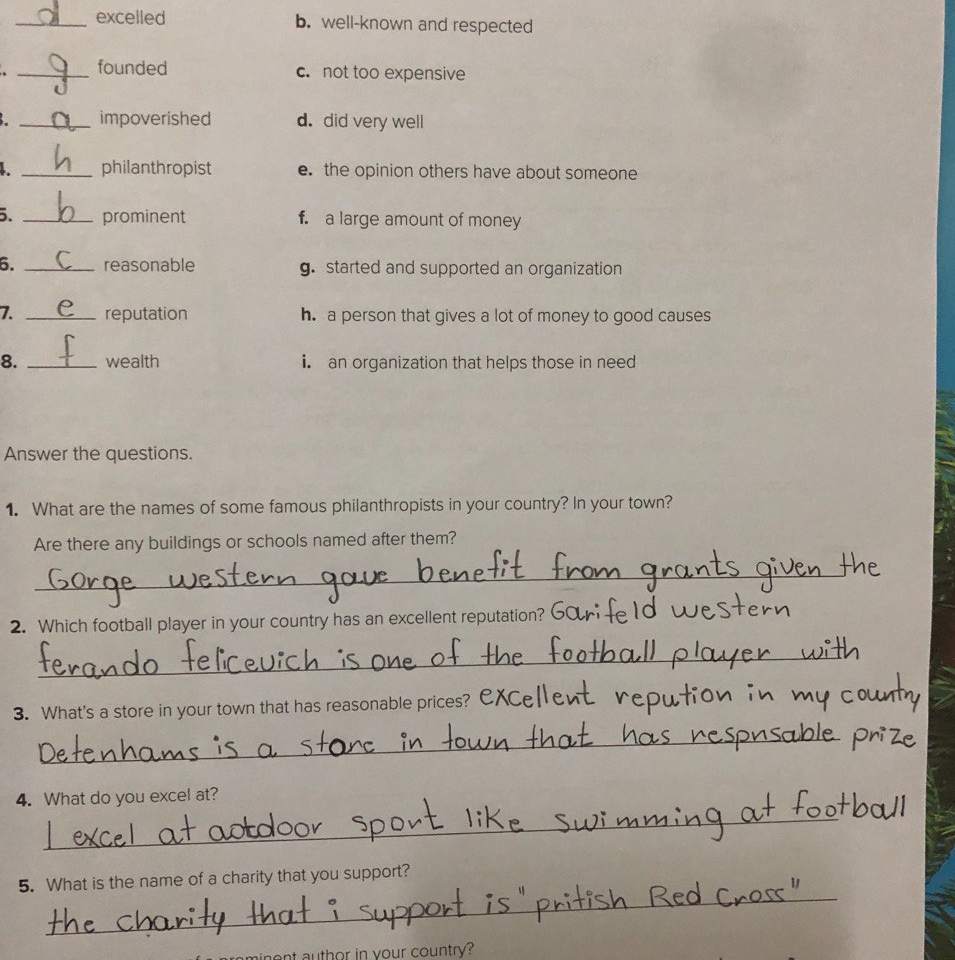 d excelled b. well-known and respected
. g founded c. not too expensive
3. a impoverished d. did very well
4. h philanthropist e. the opinion others have about someone
5. b prominent f. a large amount of money
6. c reasonable g. started and supported an organization
7. e reputation h. a person that gives a lot of money to good causes
8. f wealth i. an organization that helps those in need
Answer the questions.
1. What are the names of some famous philanthropists in your country? In your town?
Are there any buildings or schools named after them?
Gorge western gave benefit from grants given the
2. Which football player in your country has an excellent reputation? Garifeld western
ferando felicevich is one of the football player with
3. What's a store in your town that has reasonable prices? excellent repution in my country
Detenhams is a store in town that has respnsable prize
4. What do you excel at?
I excel at aotdoor sport like swimming at football
5. What is the name of a charity that you support?
the charity that i support is "pritish Red Cross"
prominent author in your country?